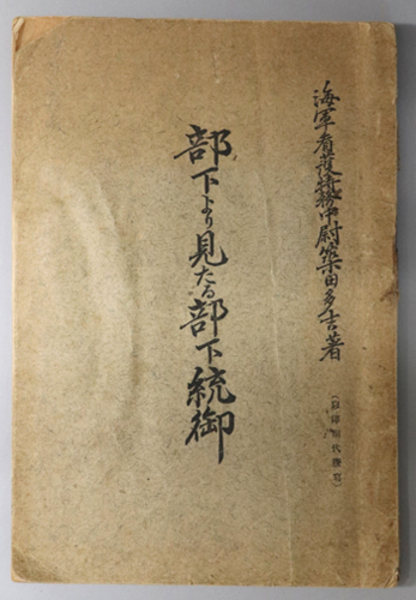 海軍看護特務中尉築田多吉著
部下より見たる部下統御